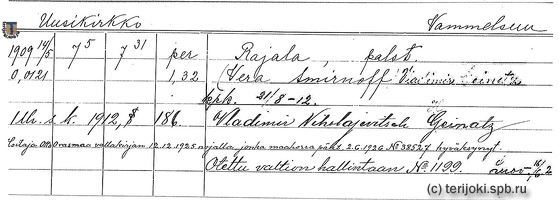 Uusikirkko Vammelsuu
1909 14/5 7 5 7 31 per Rajala, palst.
0,0121 1,32 (Vera Smirnoff Vladimir Geinatz
krk. 21/8-12.
1 llk. s. k. 1912, § 186. Vladimir Nikolajevitsch Geinatz
Ostaja Otto Orasmaa valtakirjan 12.12.1925 nojalla, jonka maaherra päät. 2.6.1926 № 38527 hyväksynyt.
Otettu valtion hallintaan № 1199.
(c) terijoki.spb.ru